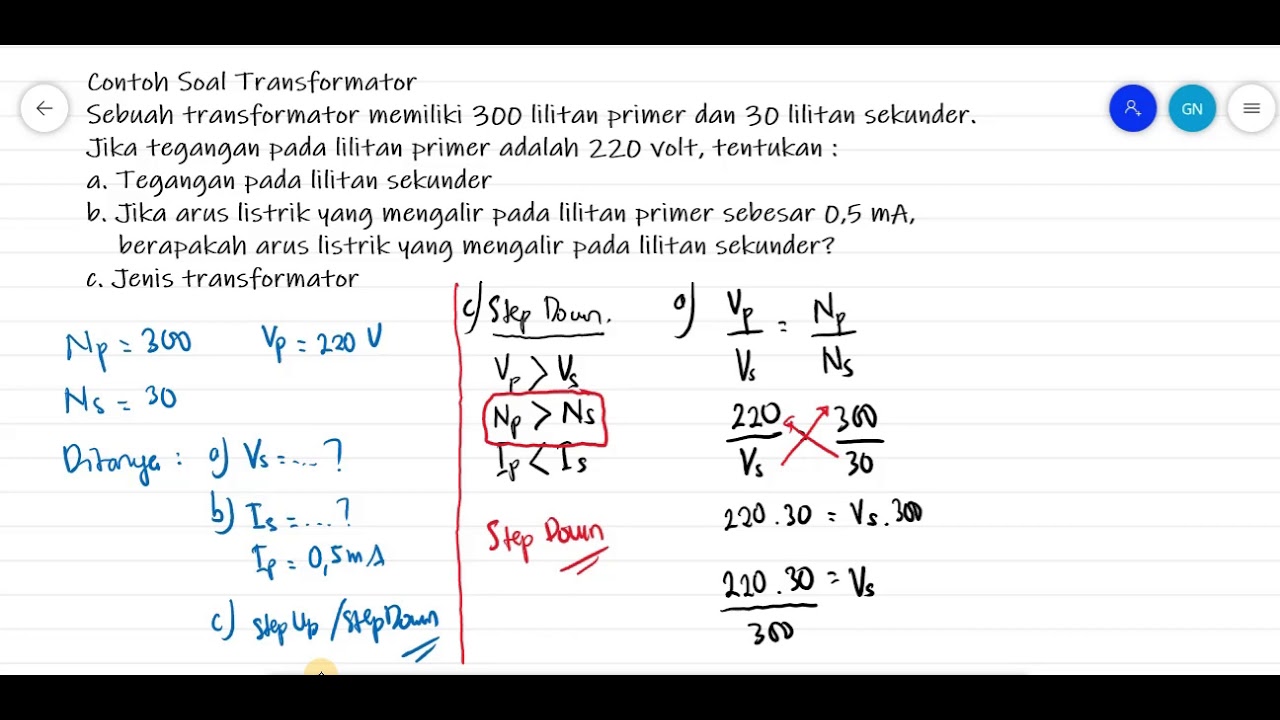 Contoh Soal Transformator
Sebuah transformator memiliki 300 lilitan primer dan 30 lilitan sekunder.
Jika tegangan pada lilitan primer adalah 220 volt, tentukan :
a. Tegangan pada lilitan sekunder
b. Jika arus listrik yang mengalir pada lilitan primer sebesar 0,5 mA,
berapakah arus listrik yang mengalir pada lilitan sekunder?
c. Jenis transformator
GN
Np = 300 Vp = 220 V
Ns = 30
Ditanya : a) Vs = .... ?
b) Is = .... ?
Ip = 0,5 mA
c) Step Up / Step Down
c) Step Down.
Vp > Vs
Np > Ns
Ip < Is
Step Down
a) Vp/Vs = Np/Ns
220/Vs 300/30
220 . 30 = Vs . 300
220 . 30/300 = Vs